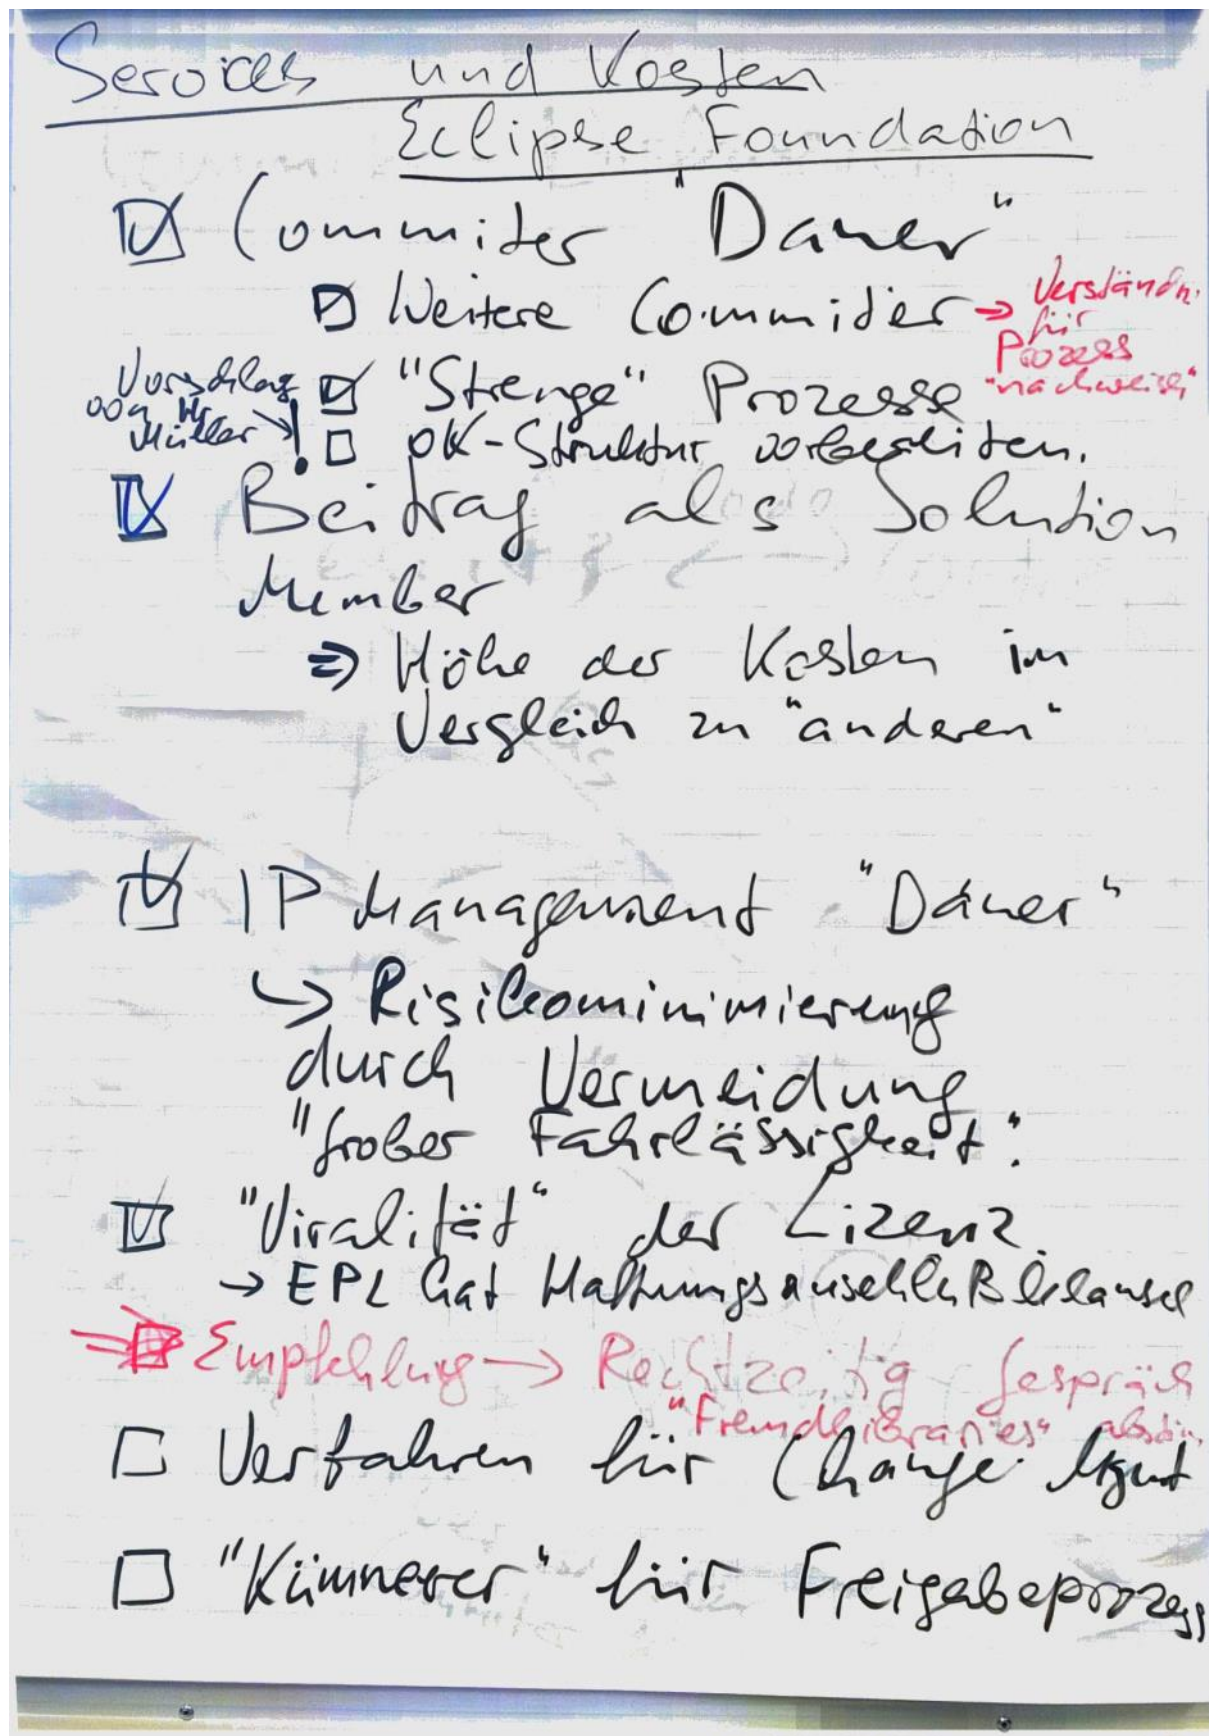 Services und Kosten
Eclipse Foundation
Commiter "Dauer"
Weitere Commiter → Verständn.
für
Prozess
"nachweisen"
Vorschlag
von Hr
Müller
"Strenge" Prozesse
! PK-Struktur vorbereiten.
Beitrag als Solution
Member
⇒ Höhe der Kosten im
Vergleich zu "anderen"
IP Management "Dauer"
↳ Risikominimierung
durch Vermeidung
"grober Fahrlässigkeit".
"Viralität" der Lizenz.
→ EPL hat Haftungsausschlußklausel
⇒ Empfehlung → Rechtzeitig Gespräch
"Fremdlibraries"
Verfahren für Change Mgmt
"Kümmerer" für Freigabeprozess